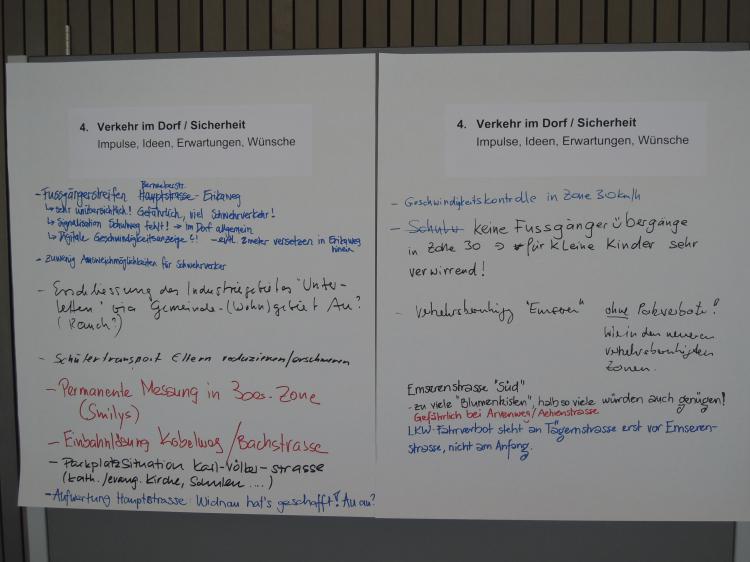 4. Verkehr im Dorf / Sicherheit
Impulse, Ideen, Erwartungen, Wünsche
Berneckerstr.
- Fussgängerstreifen Hauptstrasse - Erikaweg
↳ sehr unübersichtlich! Gefährlich, viel Schwehrverkehr!
↳ Signalisation Schulweg fehlt! → im Dorf allgemein
↳ Digitale Geschwindigkeitsanzeige ! - evtl. 2 meter versetzen in Erikaweg
hinein
- zuwenig Ausweichmöglichkeiten für Schwehrverker
- Erschliessung des Industriegebietes "Unter-
letten" via Gemeinde-(Wohn)gebiet Au?
(Rauch?)
- Schülertransport Eltern reduzieren/erschweren
- Permanente Messung in 30er-Zone
(Smilys)
- Einbahnlösung Kobelweg/Bachstrasse
- Parkplatzsituation Karl-Völker-strasse
(kath./evang. Kirche, Schulen ....)
- Aufwertung Hauptstrasse: Widnau hat's geschafft! Au au?
4. Verkehr im Dorf / Sicherheit
Impulse, Ideen, Erwartungen, Wünsche
- Geschwindigkeitskontrolle in Zone 30km/h
- Schulw keine Fussgänger übergänge
in Zone 30 → für kleine Kinder sehr
verwirrend!
- verkehrsberuhigg "Emseren" ohne Parkverbote!
Wie in den neueren
verkehrsberuhigten
Zonen.
Emserenstrasse "Süd"
- zu viele "Blumenkisten", halb so viele würden auch genügen!
Gefährlich bei Arvenweg/Aehenstrasse
LKW-Fahrverbot steht an Tägernstrasse erst vor Emseren-
strasse, nicht am Anfang.